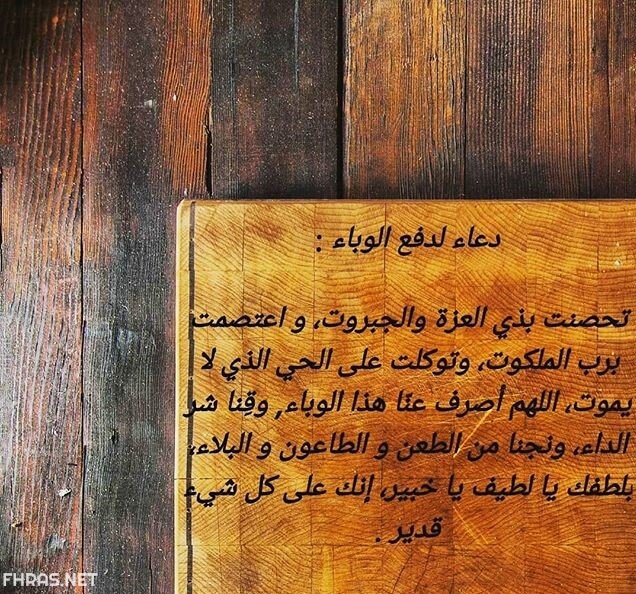 دعاء لدفع الوباء :
تحصنت بذي العزة والجبروت، و اعتصمت
برب الملكوت، وتوكلت على الحي الذي لا
يموت، اللهم أصرف عنّا هذا الوباء, وقِنا شر
الداء، ونجنا من الطعن و الطاعون و البلاء،
بلطفك يا لطيف يا خبير، إنك على كل شيء
قدير .
FHRAS.NET